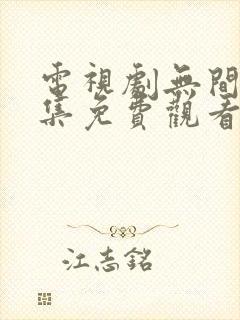 電視劇無間
集免費觀看
江志銘